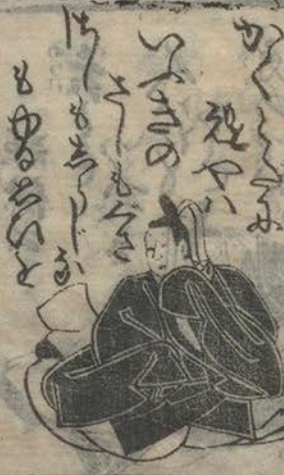 かくとだに
えやは
いぶきの
さしもぐさ
さしもしらじな
もゆるおもひを